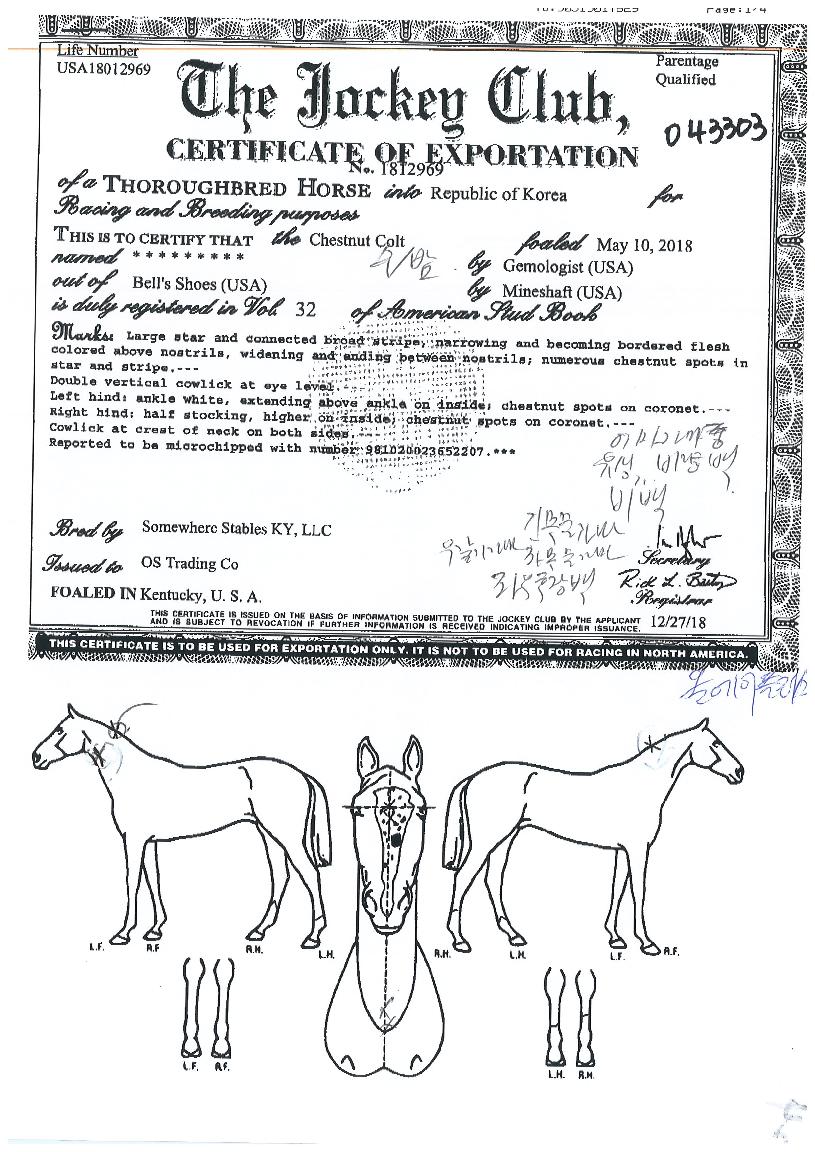 Page: 1/4
Life Number
USA18012969
Parentage
Qualified
The Jockey Club,
043303
CERTIFICATE OF EXPORTATION
No. 1812969
of a THOROUGHBRED HORSE into Republic of Korea for
Racing and Breeding purposes
THIS IS TO CERTIFY THAT the Chestnut Colt foaled May 10, 2018
named * * * * * * * * * by Gemologist (USA)
out of Bell's Shoes (USA) by Mineshaft (USA)
is duly registered in Vol. 32 of American Stud Book
Marks: Large star and connected broad stripe, narrowing and becoming bordered flesh
colored above nostrils, widening and ending between nostrils; numerous chestnut spots in
star and stripe.---
Double vertical cowlick at eye level.---
Left hind: ankle white, extending above ankle on inside; chestnut spots on coronet.---
Right hind: half stocking, higher on inside; chestnut spots on coronet.---
Cowlick at crest of neck on both sides.---
Reported to be microchipped with number 981020023652207.***
비백
Bred by Somewhere Stables KY, LLC
Issued to OS Trading Co
Secretary
Rick L. Bailey
Registrar
FOALED IN Kentucky, U. S. A.
THIS CERTIFICATE IS ISSUED ON THE BASIS OF INFORMATION SUBMITTED TO THE JOCKEY CLUB BY THE APPLICANT
AND IS SUBJECT TO REVOCATION IF FURTHER INFORMATION IS RECEIVED INDICATING IMPROPER ISSUANCE. 12/27/18
THIS CERTIFICATE IS TO BE USED FOR EXPORTATION ONLY. IT IS NOT TO BE USED FOR RACING IN NORTH AMERICA.
L.F. R.F R.H. L.H. R.H. L.H. L.F. R.F.
L.F. R.F. L.H. R.H.